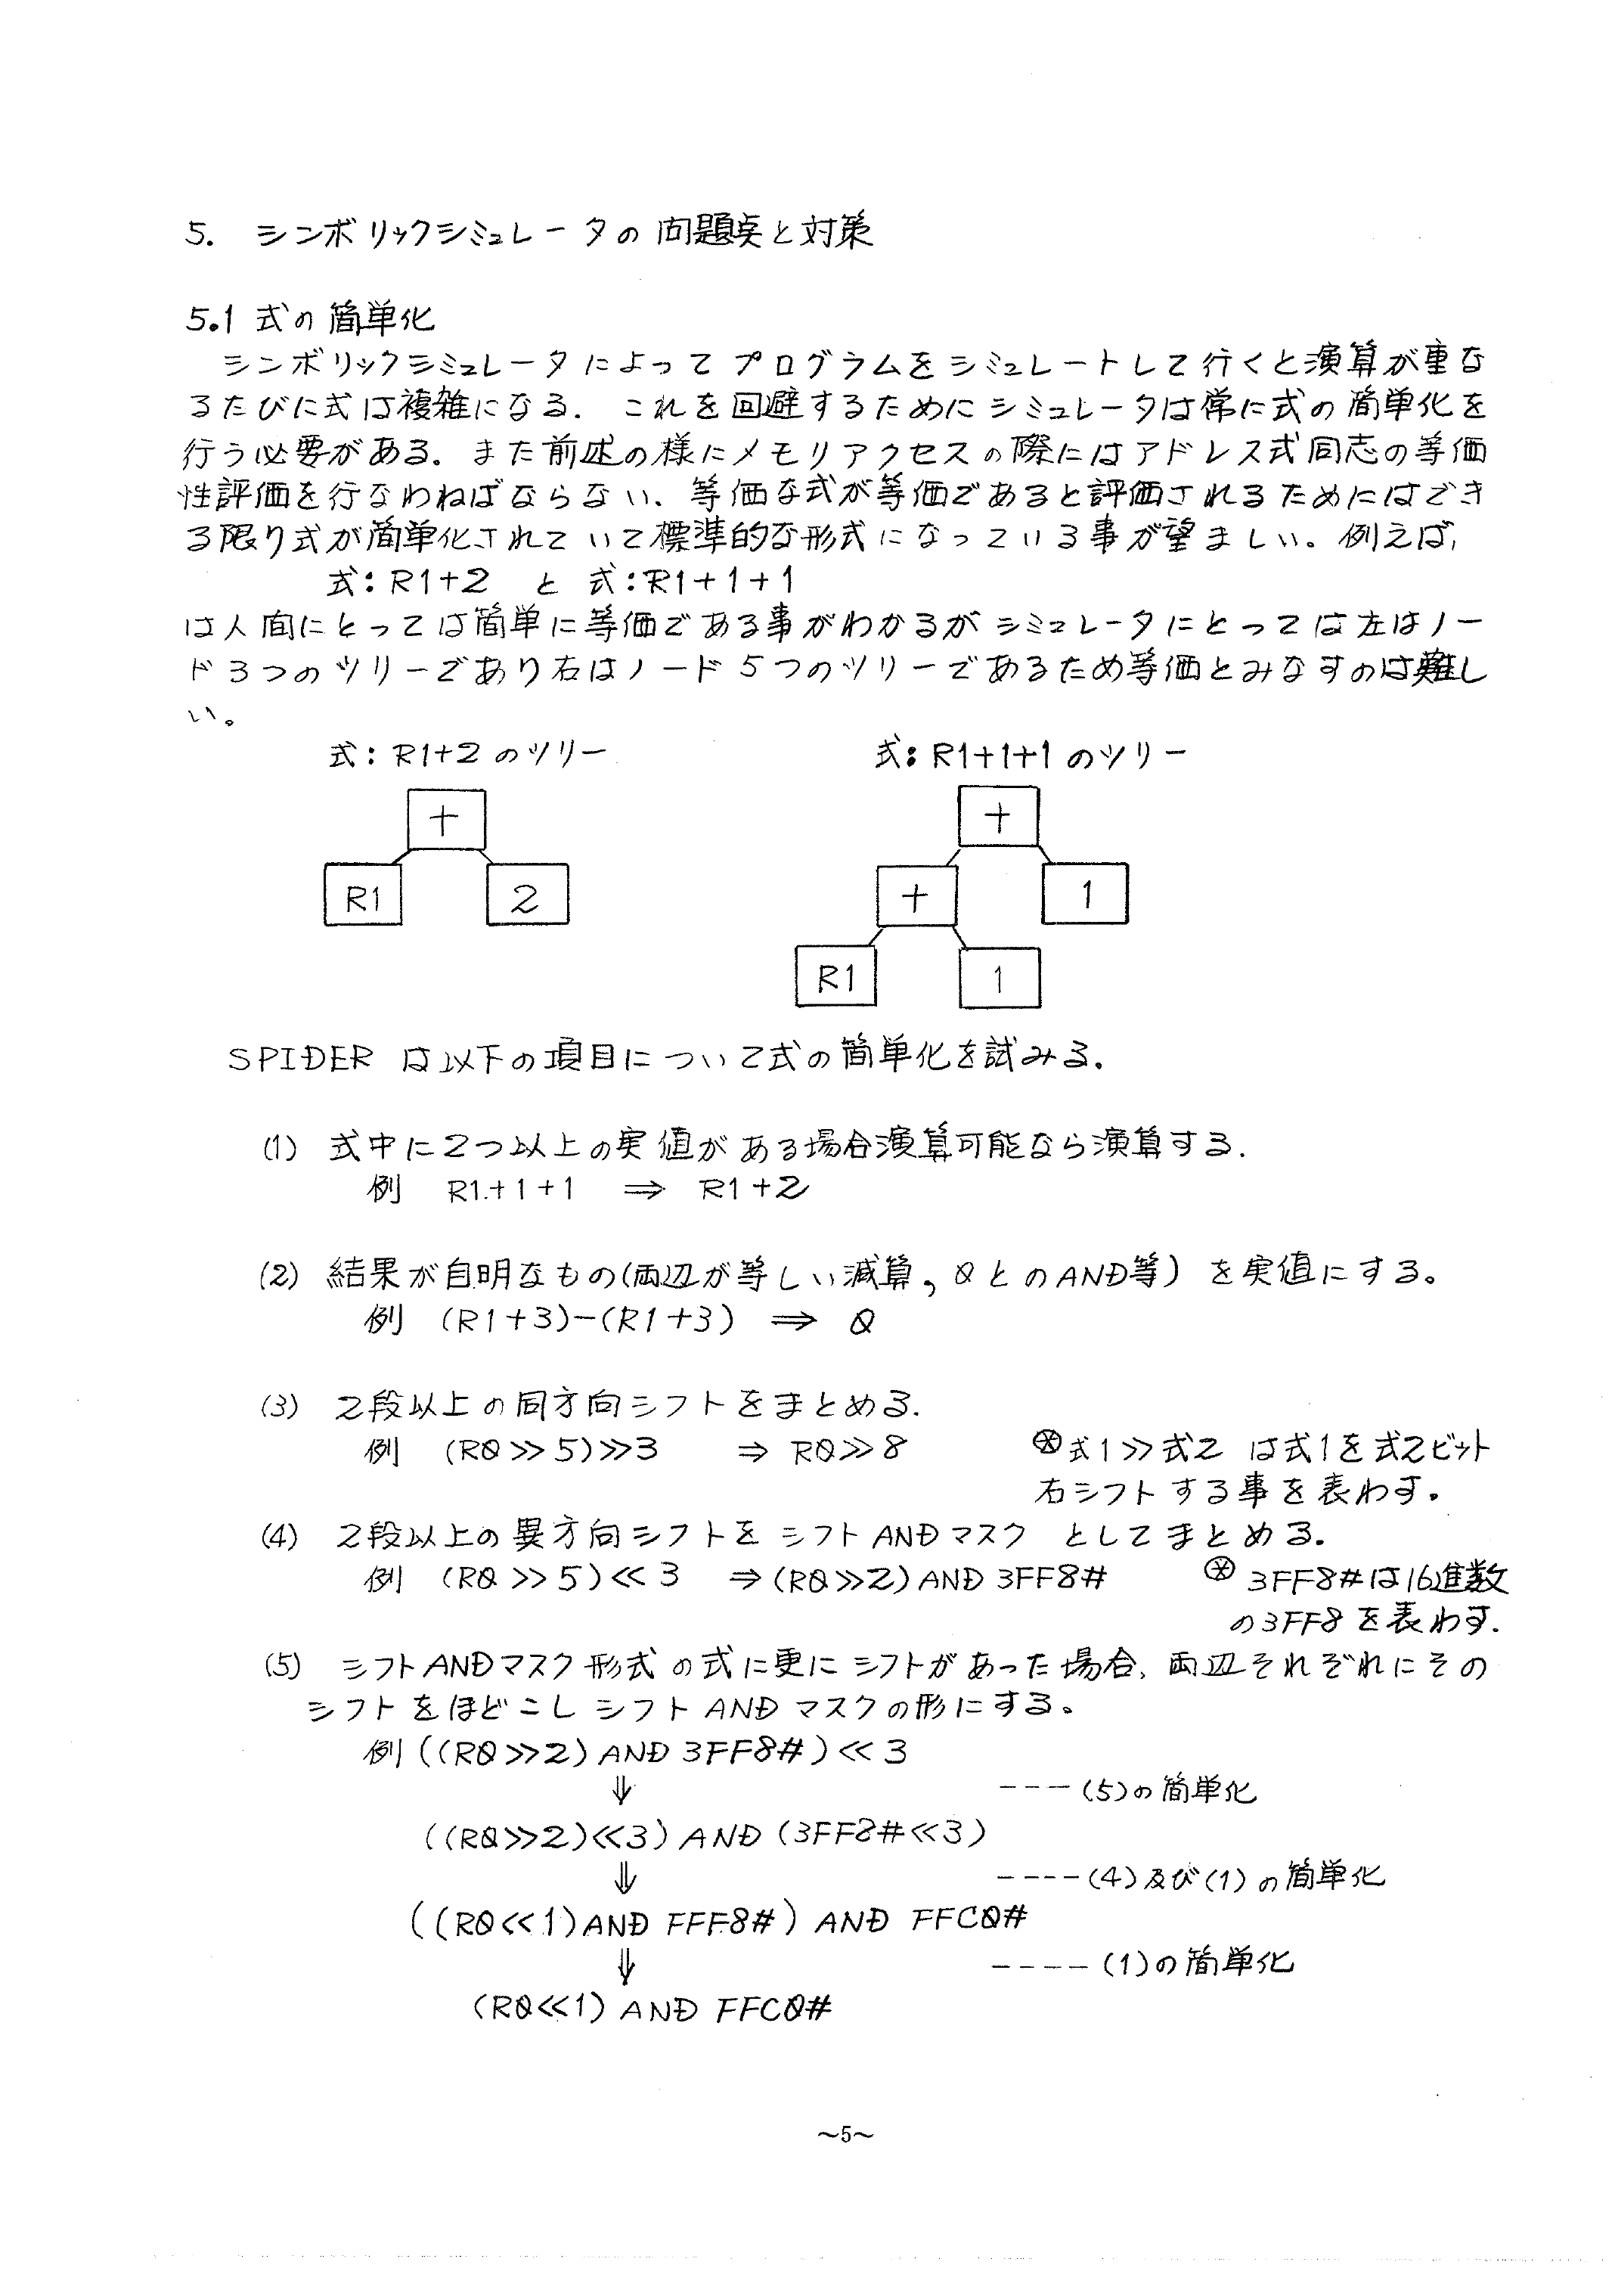 5. シンボリックシミュレータの問題点と対策
5.1 式の簡単化
シンボリックシミュレータによってプログラムをシミュレートして行くと演算が重な
るたびに式は複雑になる. これを回避するためにシミュレータは常に式の簡単化を
行う必要がある. また前述の様にメモリアクセスの際にはアドレス式同志の等価
性評価を行なわねばならない. 等価な式が等価であると評価されるためにはでき
る限り式が簡単化されていて標準的な形式になっている事が望ましい。例えば,
式:R1+2 と 式:R1+1+1
は人間にとっては簡単に等価である事がわかるがシミュレータにとっては左はノー
ド3つのツリーであり右はノード5つのツリーであるため等価とみなすのは難し
い。
式:R1+2のツリー 式:R1+1+1のツリー
+ +
R1 2 + 1
R1 1
SPIDER は以下の項目について式の簡単化を試みる.
(1) 式中に2つ以上の実値がある場合演算可能なら演算する.
例 R1+1+1 ⇒ R1+2
(2) 結果が自明なもの(両辺が等しい減算,0とのAND等) を実値にする。
例 (R1+3)-(R1+3) ⇒ 0
(3) 2段以上の同方向シフトをまとめる.
例 (R0≫5)≫3 ⇒ R0≫8 ⊛式1≫式2 は式1を式2ビット
右シフトする事を表わす.
(4) 2段以上の異方向シフトをシフトANDマスク としてまとめる.
例 (R0≫5)≪3 ⇒(R0≫2)AND 3FF8# ⊛ 3FF8#は16進数
の3FF8を表わす.
(5) シフトANDマスク形式の式に更にシフトがあった場合, 両辺それぞれにその
シフトをほどこしシフトANDマスクの形にする。
例((R0≫2)AND 3FF8#)≪3
⇓ ---(5)の簡単化
((R0≫2)≪3)AND(3FF8#≪3)
⇓ ----(4)及び(1)の簡単化
((R0≪1)AND FFF8#) AND FFC0#
⇓ ----(1)の簡単化
(R0≪1) AND FFC0#
~5~